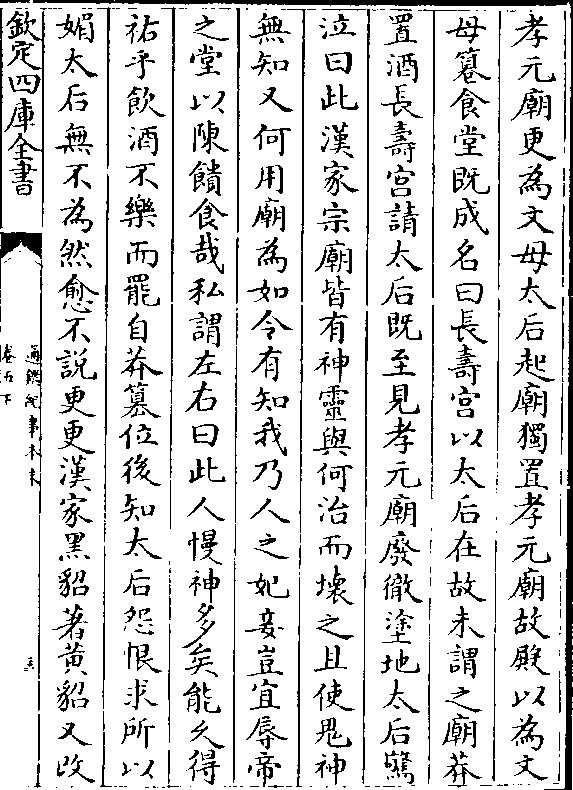 孝元廟更為文母太后起廟獨置孝元廟故殿以為文
母篹食堂既成名曰長壽宮以太后在故未謂之廟莽
置酒長壽宮請太后既至見孝元廟廢徹塗地太后驚
泣曰此漢家宗廟皆有神靈與何治而壞之且使鬼神
無知又何用廟為如令有知我乃人之妃妾豈宜辱帝
之堂以陳饋食哉私謂左右曰此人慢神多矣能久得
祐乎飲酒不樂而罷自莽篡位後知太后怨恨求所以
媚太后無不為然愈不說更更漢家黑貂著黃貂又改
欽定四庫全書
通鑑紀事本末
卷五下